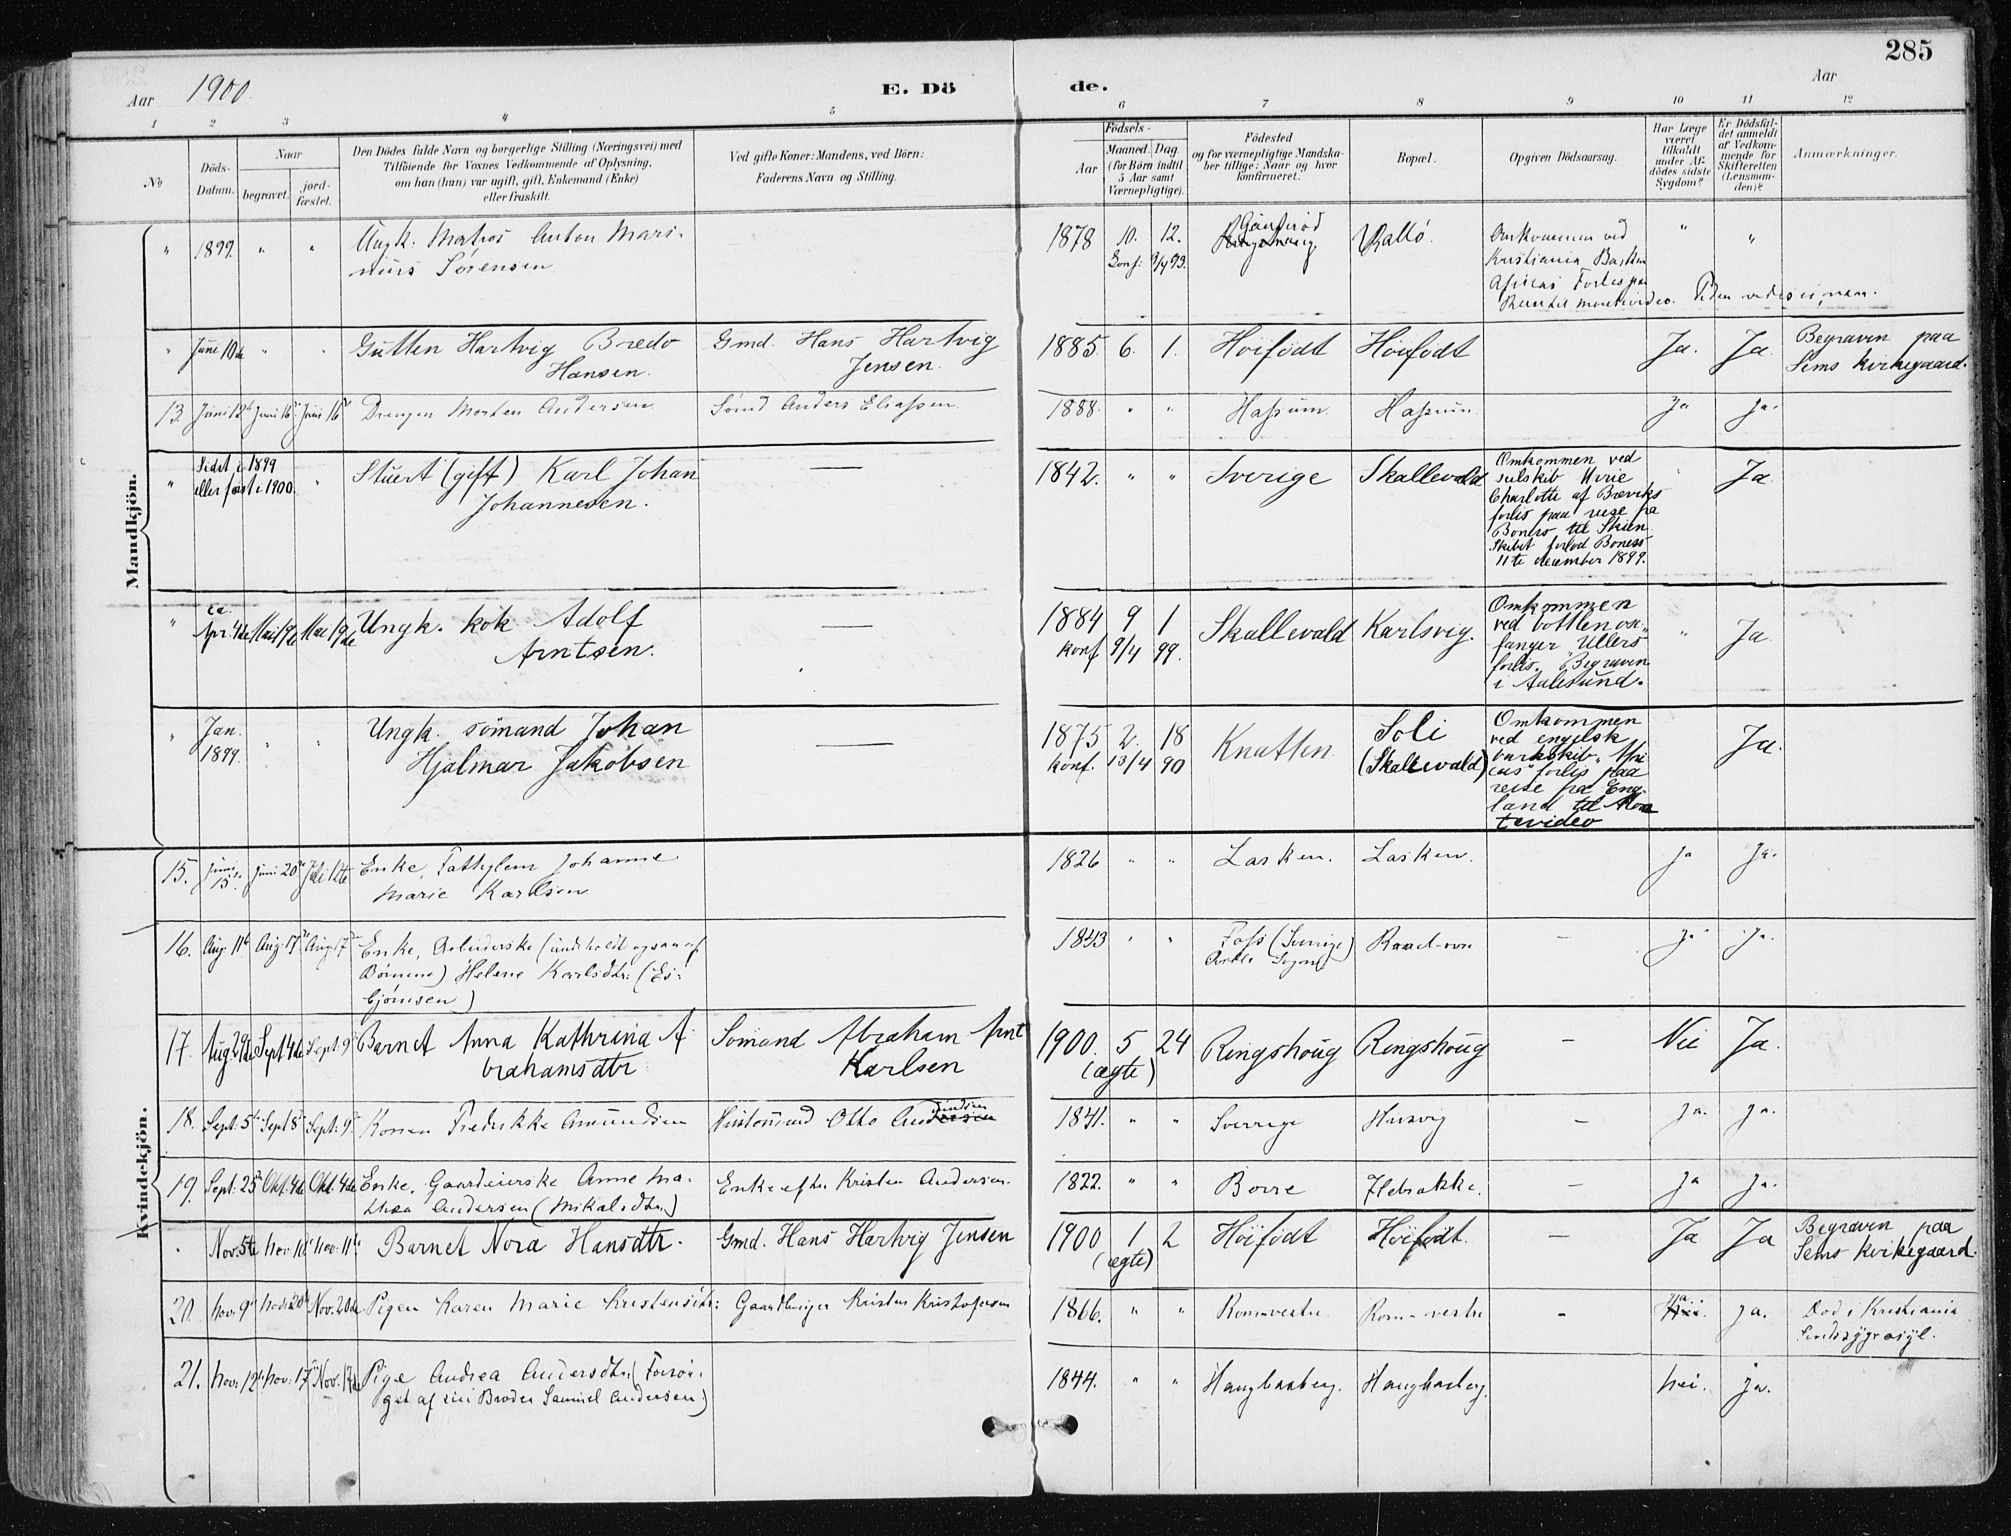 285
Aar 1900.
E. Dö de.
Aar
1 2 3 4 5 6 7 8 9 10 11 12
No
Döds-Datum.
Naar
begravet.
jord-fæstet.
Den Dödes fulde Navn og borgerlige Stilling (Næringsvei) med
Tilföiende for Voxnes Vedkommende af Oplysning,
om han (hun) var ugift, gift, Enkemand (Enke)
eller fraskilt.
Ved gifte Koner: Mandens, ved Börn:
Faderens Navn og Stilling.
Födsels-
Aar
Maaned. Dag
(for Börn indtil
5 Aar samt
Værnepligtige).
Födested
og for værnepligtige Mandska-
ber tillige: Naar og hvor
konfirmeret.
Bopæl.
Opgiven Dödsaarsag.
Har Læge
været
tilkaldt
under Af-
dödes sidste
Sygdom?
Er Dödsfal-
det anmeldt
af Vedkom-
mende for
Skifteretten
(Lensman-
den)?
Anmærkninger.
Mandkjön.
" 1899. " " Ungk. Matros Anton Mari-
nius Sørensen 1878 10. 12. Konf. 9/4 93. Vallö. Omkommen ved
Kristiania Bark
Forlis paa
" Juni 10de " " Gutten Hartvig Bredo
Hansen. Gmd. Hans Hartvig
Jensen. 1885. 6. 1. Höifödt Höifödt Ja. Ja. Begraven paa
Sems kirkegaard.
13. Juni 12te Juni 16de Juni 16de Drengen Morten Andersen. Sömd Anders Eliassen. 1888. " " Hassum. Hassum. Ja Ja.
" Sidst i 1899
eller først i 1900. " Stuert (gift) Karl Johan
Johannesen. — 1842. " " Sverige Skallevald Omkommen ved
seilskib
Charlotte af Breviks
forlis paa reise fra
Boness til Skien
Skibet forlod Boness
11te december 1899. " Ja.
" ca. Apr. 4de Mai 19de Mai 19de Ungk. kok Adolf
Arntsen. — 1884 9 1 konf 9/4 99. Skallevald Karlsvig. Omkommen
ved bottlenose-
fanger "Ullers"
forlis. Begraven
i Aalesund. " Ja.
" Jan. 1899. " " Ungk. sömand Johan
Hjalmar Jakobsen — 1875 2. 18 konf. 13/4 90 Knatten Soli
(Skallevald) Omkommen
ved engelsk
barkskib
forlis paa
reise fra Eng-
land til Mon
tevideo Ja.
Kvindekjön.
15. Juni 15. Juni 20de Juli 12te Enke, Fattiglem Johanne
Marie Karlsen 1826 " " Lasken. Lasken. Ja Ja.
16. Aug 11te Aug. 17de Aug. 17de Enke, Arbeiderske
Börnene) Helene Karlsdtr. 1843 " " Foss (Sverige) — Ja Ja.
17. Aug 29de Sept 4de Sept. 9de Barnet Anna Kathrina A-
brahamsdtr Sömand Abraham Arnt
Karlsen 1900. 5 24 (ægte) Ringshoug Ringshoug — Nei Ja.
18. Sept. 5te Sept 8de Sept. 9de Konen Fredrikke Amundsen Otto 1841. " " Sverrige Husvig — Ja. Ja.
19. Sept. 25de Okt. 4de Okt. 4de Enke, Gaardeierske Anne Ma-
thea Andersen (Mikalsdtr.) Enke efter Kristen Andersen. 1822. " " Borre — Ja Ja.
" Nov. 5te Nov. 11te Nov. 11te Barnet Nora Hansdtr. Gmd. Hans Hartvig Jensen 1900 1 2 (ægte) Höifödt Höifödt. — Ja Ja Begraven paa
Sems kirkegaard.
20. Nov. 9de Nov. 20de Nov. 20de Pigen Karen Marie Kristensdtr. Gaardbruger Kristen Kristofersen 1866. " " Rom-vestre Rom-vestre - Ja. Död i Kristiania
Sindssygeasyl.
21. Nov. 12te Nov. 17de Nov. 17de Pige Andrea Andersdtr. (Forsör-
get af sin Broder Samuel Andersen.) 1844. " " Haugbarberg. Haugbarberg. Nei. Ja.